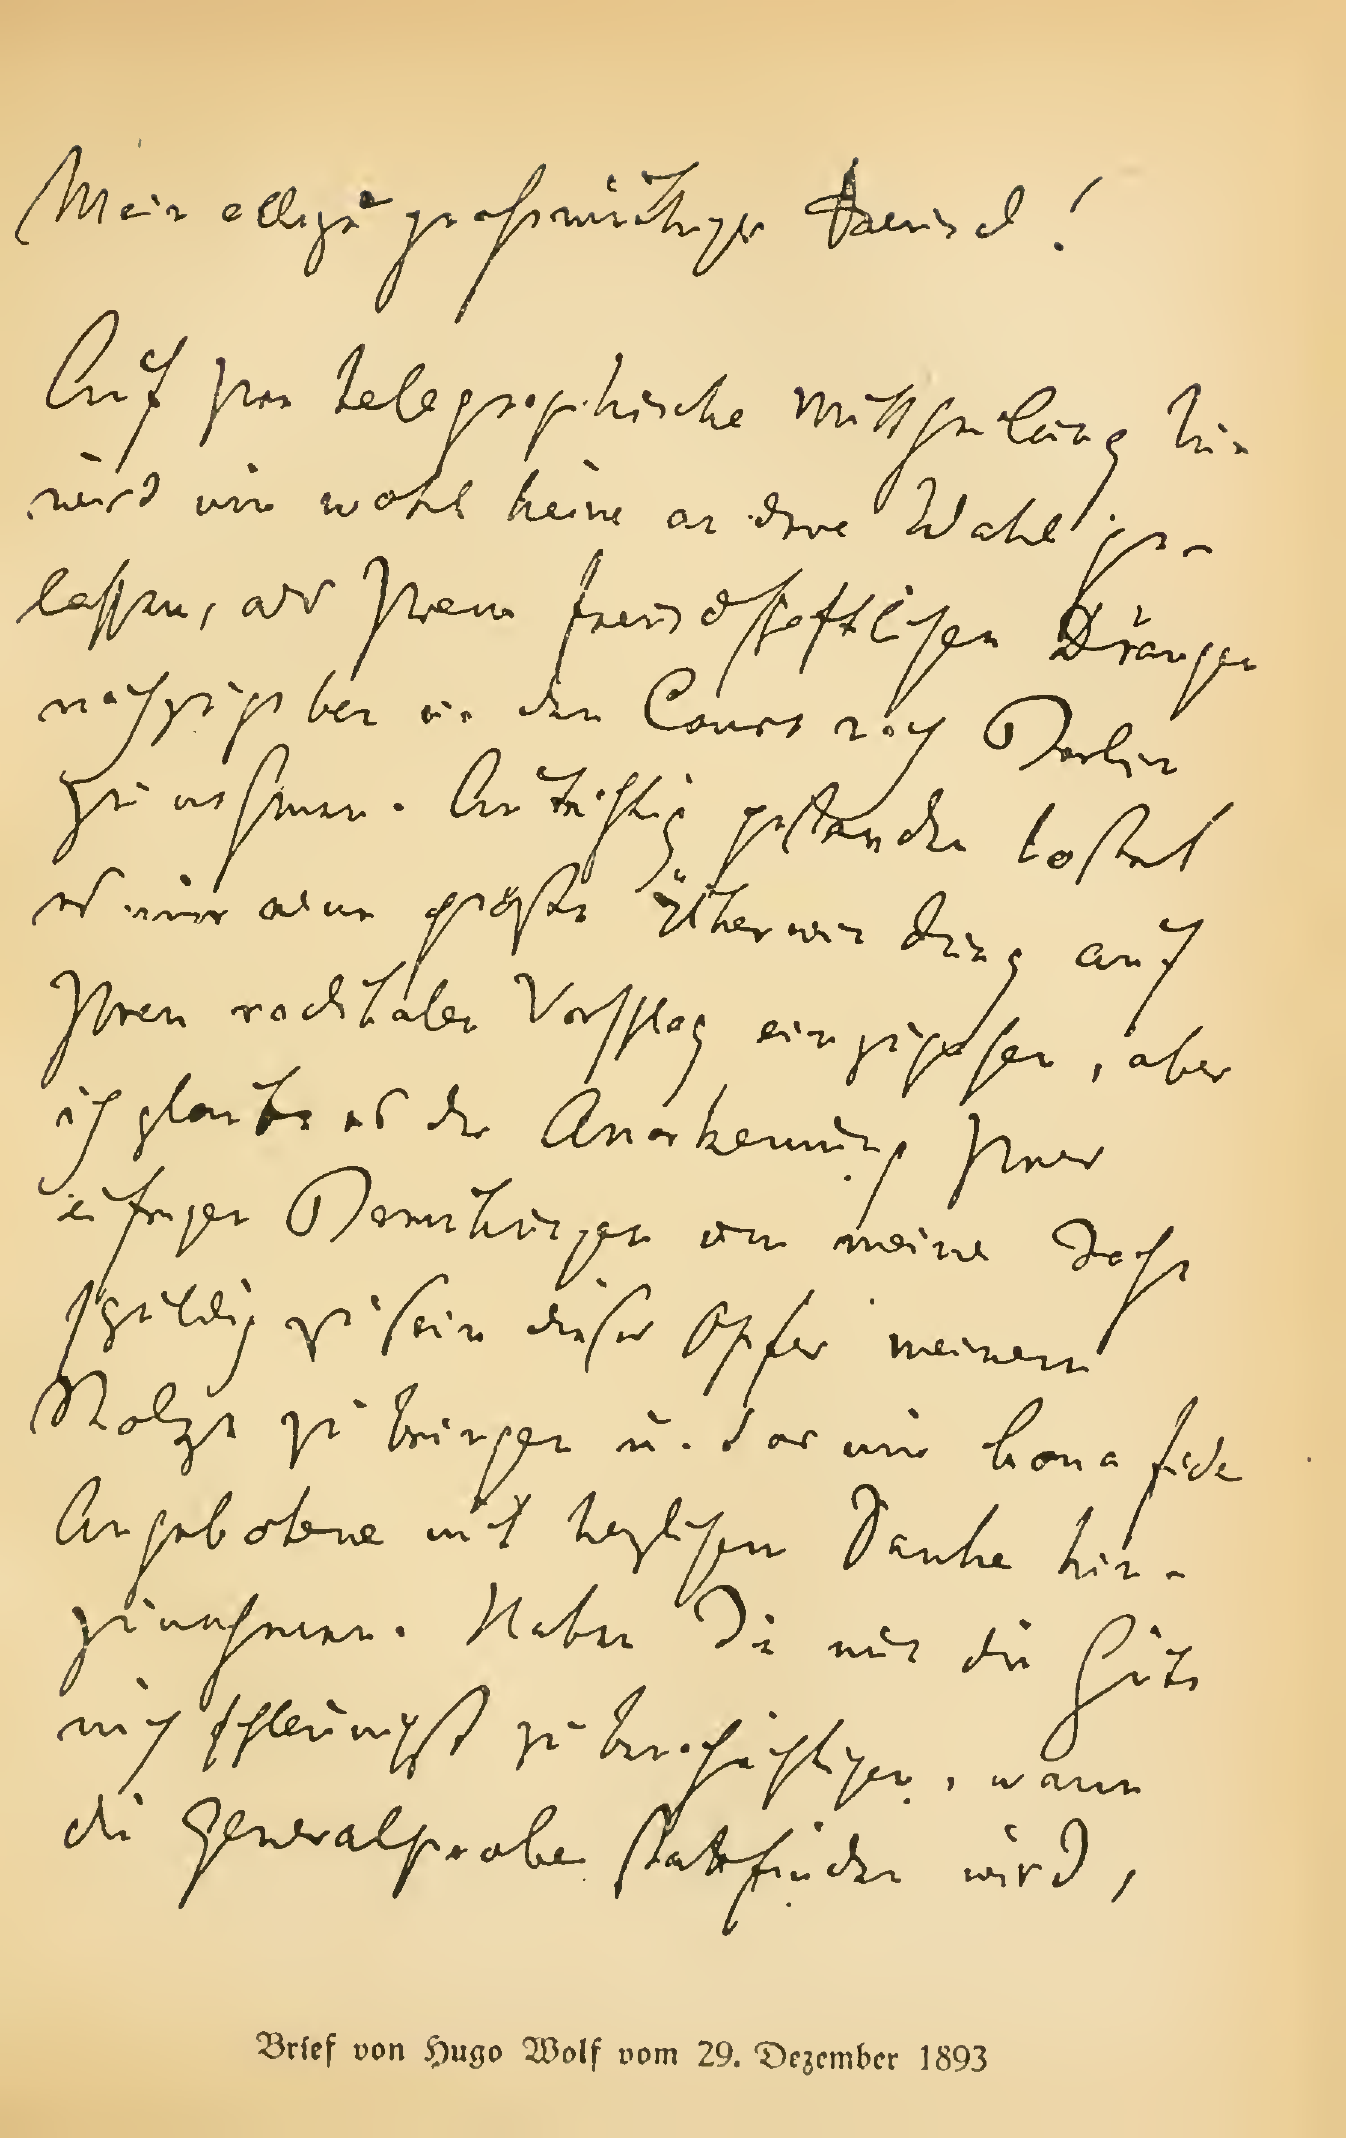 Mein allzu großmüthiger Freund!
Auf Ihre telegraphische Mittheilung hin
wird mir wohl keine andere Wahl ge-
lassen, als Ihrem freundschaftlichen Drängen
nachzugeben u. den Cours nach Berlin
zu nehmen. Aufrichtig gestanden kostet
es mir eine große Überwindung auf
Ihren radikalen Vorschlag einzugehen, aber
ich glaube es der Anerkennung Ihrer
eifrigen Bemühungen um meine Sache
schuldig zu sein dieses Opfer meinem
Stolze zu bringen u. das mir bona fide
Angebotene mit herzlichem Danke hin-
zunehmen. Haben Sie nur die Güte
mich schleunigst zu benachrichtigen, wann
die Generalprobe stattfinden wird,
Brief von Hugo Wolf vom 29. Dezember 1893